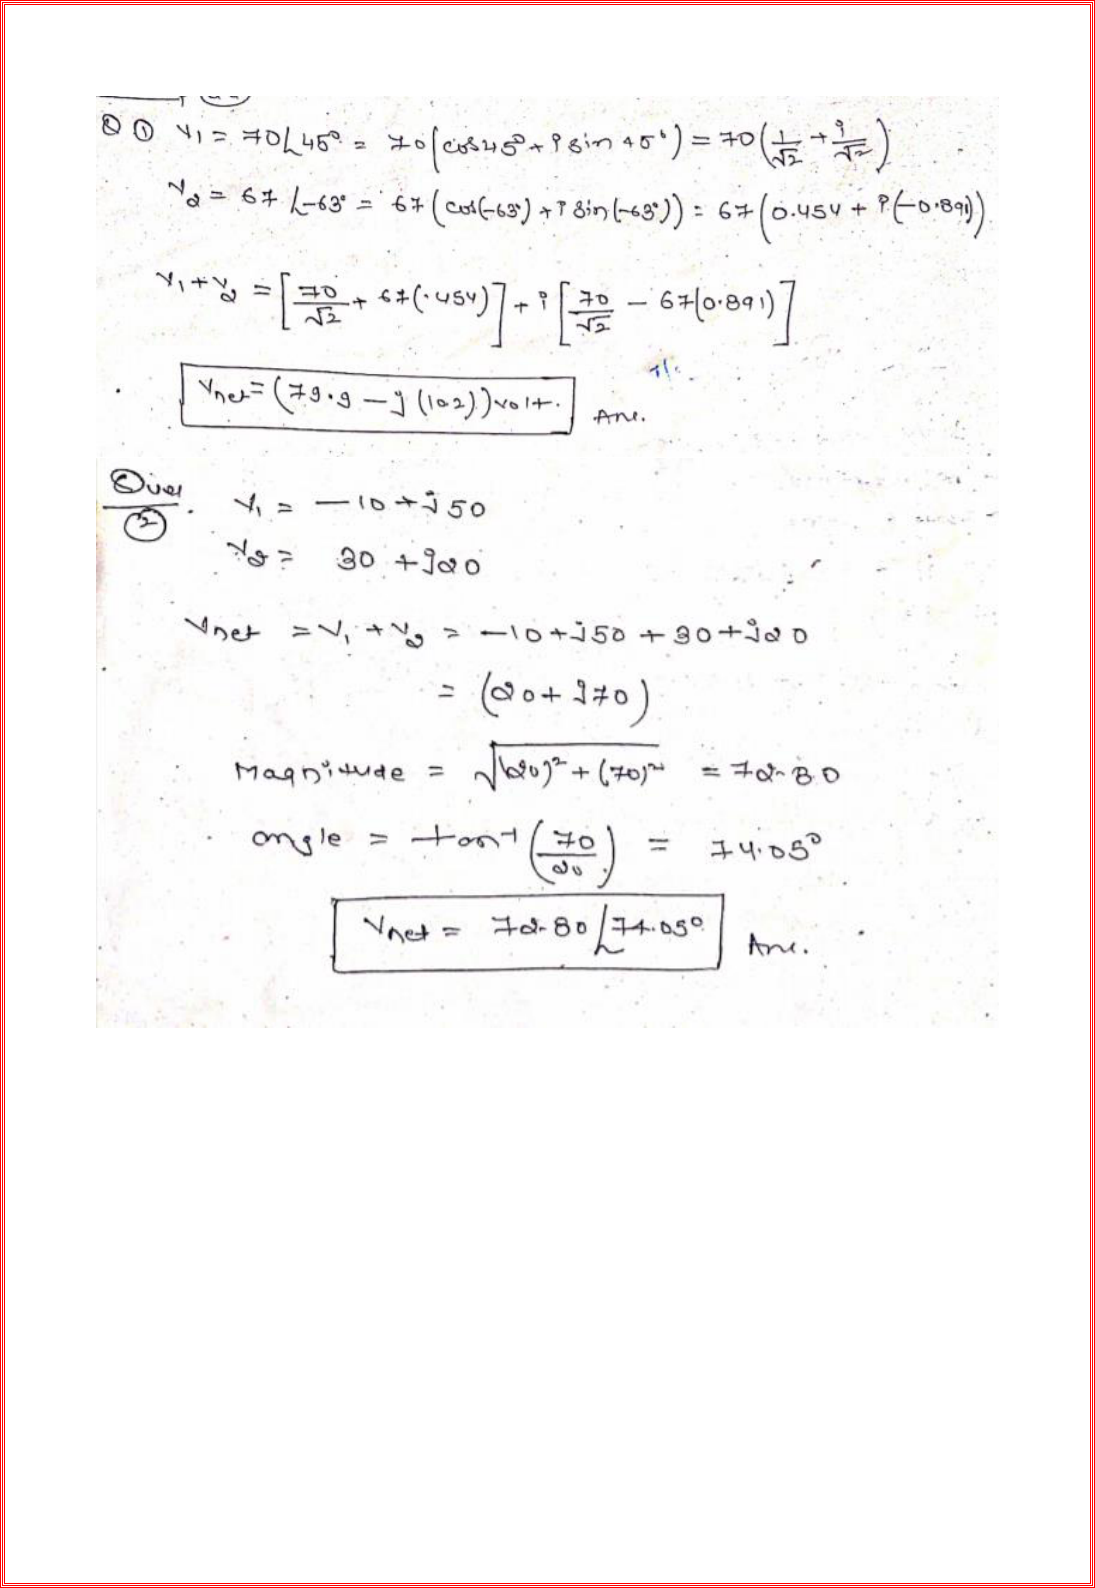 Q ① V1 = 70∠45° = 70(cos45°+ i sin 45°) = 70(1/√2 + i/√2)
V2 = 67 ∠-63° = 67(cos(-63°) + i sin(-63°)) = 67(0.454 + i(-0.891))
V1+V2 = [70/√2 + 67(.454)] + i[70/√2 - 67(0.891)]
Vnet = (79.9 - j (10.2)) volt. Ans.
Ques ② . V1 = -10 + j 50
V2 = 30 + j20
Vnet = V1 + V2 = -10 + j50 + 30 + j20
= (20 + j70)
Magnitude = √(20)² + (70)² = 72.80
angle = tan⁻¹(70/20) = 74.05°
Vnet = 72.80 ∠74.05° Ans.